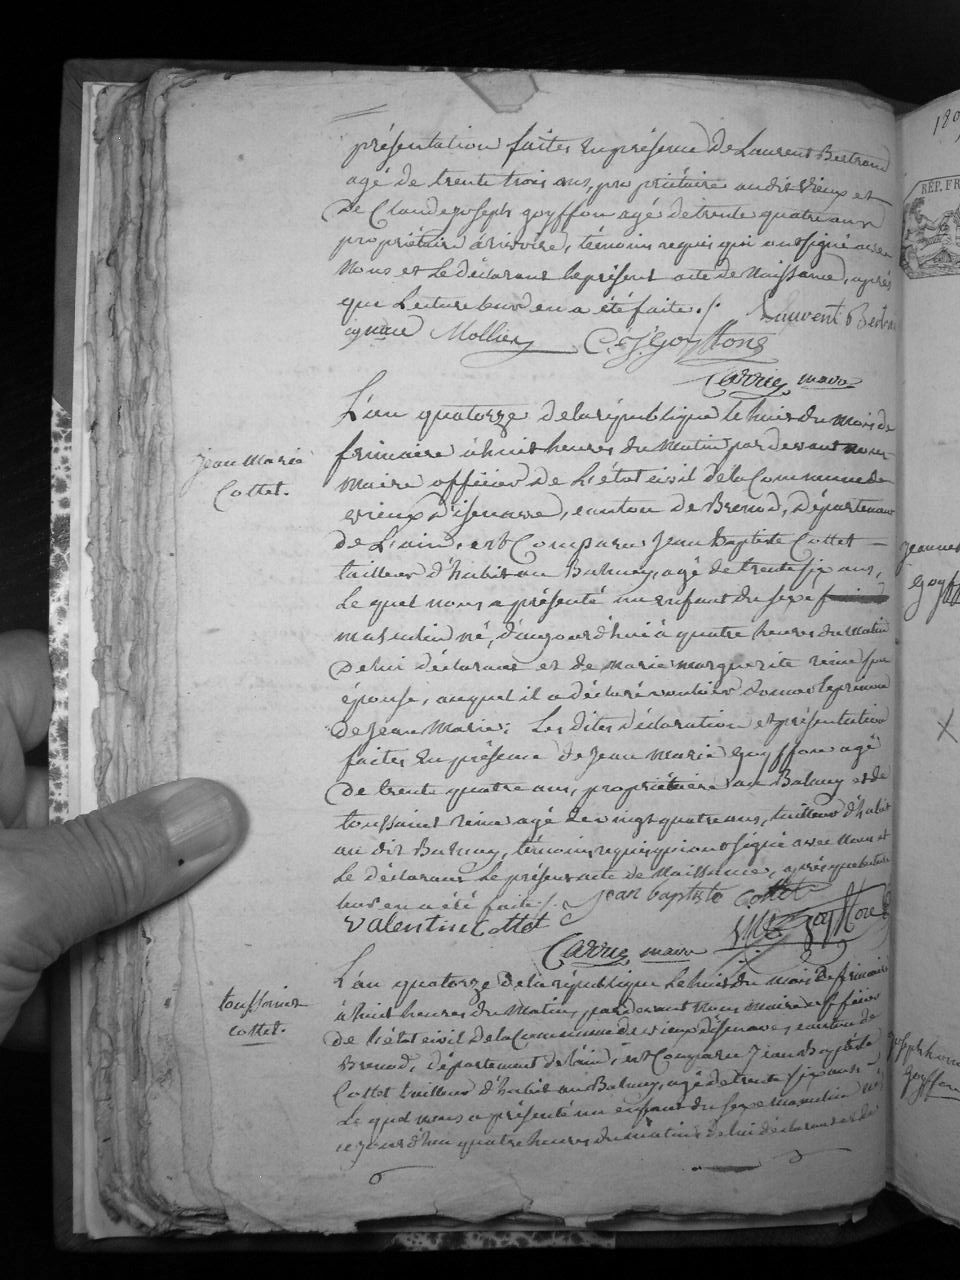 présentation faites en présence de Laurent Bertrand
agé de trente trois ans, propriétaire audit Vieux et
De Claude joseph goyffon agé de trente quatre ans
propriétaire à rivoire, témoins requis qui ont signé avec
Nous et Le déclarant le présent acte de Naissance, après
que Lecture leur en a été faite ./.
Laurent Bertra
Mollier C. J. Goyffons
Carrier maire
L'an quatorze de la république le huit du mois de
Jean Marie
Cottet.
frimaire à huit heures du Matin par devant nous
maire officier de L'état civil de la Commune de
vieux d'isenave, canton de Brenod, Département
de L'ain, est Comparu Jean Baptiste Cottet
tailleur d'habit au Balmay, agé de trente six ans,
Le quel nous a présenté un enfant du sexe
masculin né, d'aujourd'hui à quatre heures du Matin
De lui déclarant et de marie marguerite reine son
épouse, auquel il a déclaré vouloir donner le prénom
de Jean Marie; Les dites déclaration et présentation
faites En présence de Jean Marie goyffon agé
De trente quatre ans, propriétaire au Balmay et de
toussaint reine agé de vingt quatre ans, tailleur d'habit
au dit Balmay, témoins requis qui ont signé avec Nous et
Le déclarant Le présent acte de Naissance, après que lecture
leur en a été faite ./. jean baptiste cottet
valentin cottet
goyffon
Carrier maire
L'an quatorze de la république Le huit du mois De frimaire
toussaint
cottet.
à huit heures du Matin, par devant Nous maire officier
de L'état civil de la Commune de vieux d'isenave, canton de
Brenod, département de l'ain, est Comparu Jean Baptiste
Cottet tailleur d'habit au Balmay, agé de trente six ans
Le quel nous a présenté un enfant du sexe masculin né
ce jourd'hui quatre heures du matin de lui déclarant et de
180
RÉP. FR
Jeanne
goyff
joseph
goyffon